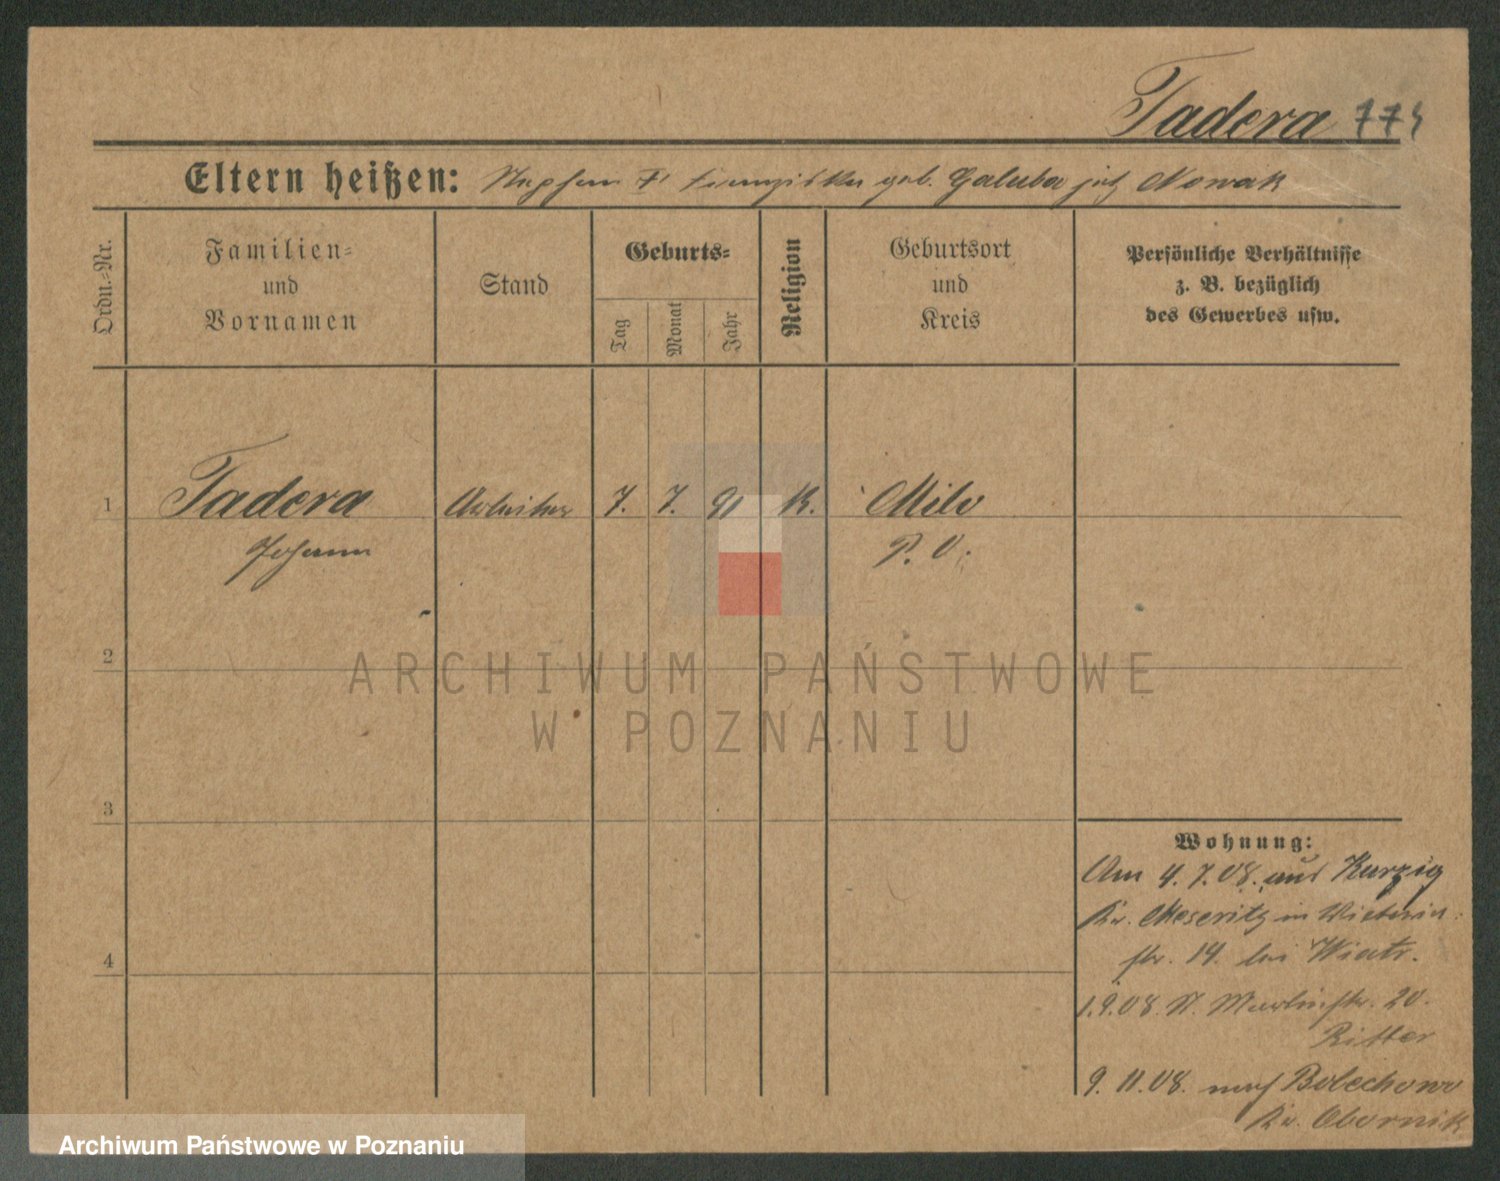 Tadera 774
Eltern heißen: Stephan † Franziska geb. Galuba jetz Nowak
Ordn.-Nr.
Familien-
und
Vornamen
Stand
Geburts-
Tag
Monat
Jahr
Religion
Geburtsort
und
Kreis
Persönliche Verhältnisse
z. B. bezüglich
des Gewerbes usw.
1 Tadera Arbeiter 7. 7. 91 K. Milo
Johann P. O.
2
3
4
Wohnung:
Am 4.7.08. aus Kurzig
Kr. Meseritz in
str. 14. bei Wiatr.
1.9.08. St. Martinstr. 20.
Ritter
9.11.08. nach Bolechowo
Kr. Obornik
ARCHIWUM PAŃSTWOWE
W POZNANIU
Archiwum Państwowe w Poznaniu